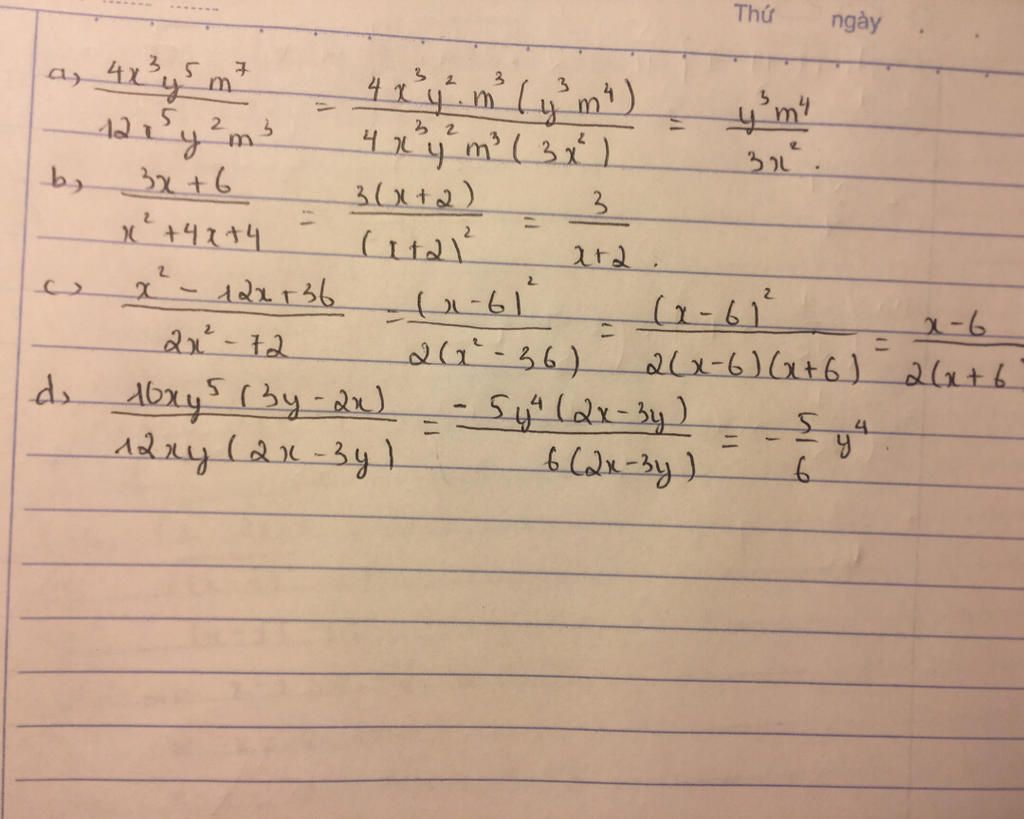 Thứ ngày
a) 4x³y⁵m⁷ / 12x⁵y²m³ = 4x³y².m³(y³m⁴) / 4x³y²m³(3x²) = y³m⁴ / 3x².
b) 3x+6 / x²+4x+4 = 3(x+2) / (x+2)² = 3 / x+2.
c) x²-12x+36 / 2x²-72 = (x-6)² / 2(x²-36) = (x-6)² / 2(x-6)(x+6) = x-6 / 2(x+6)
d) 10xy⁵(3y-2x) / 12xy(2x-3y) = -5y⁴(2x-3y) / 6(2x-3y) = -5/6 y⁴.